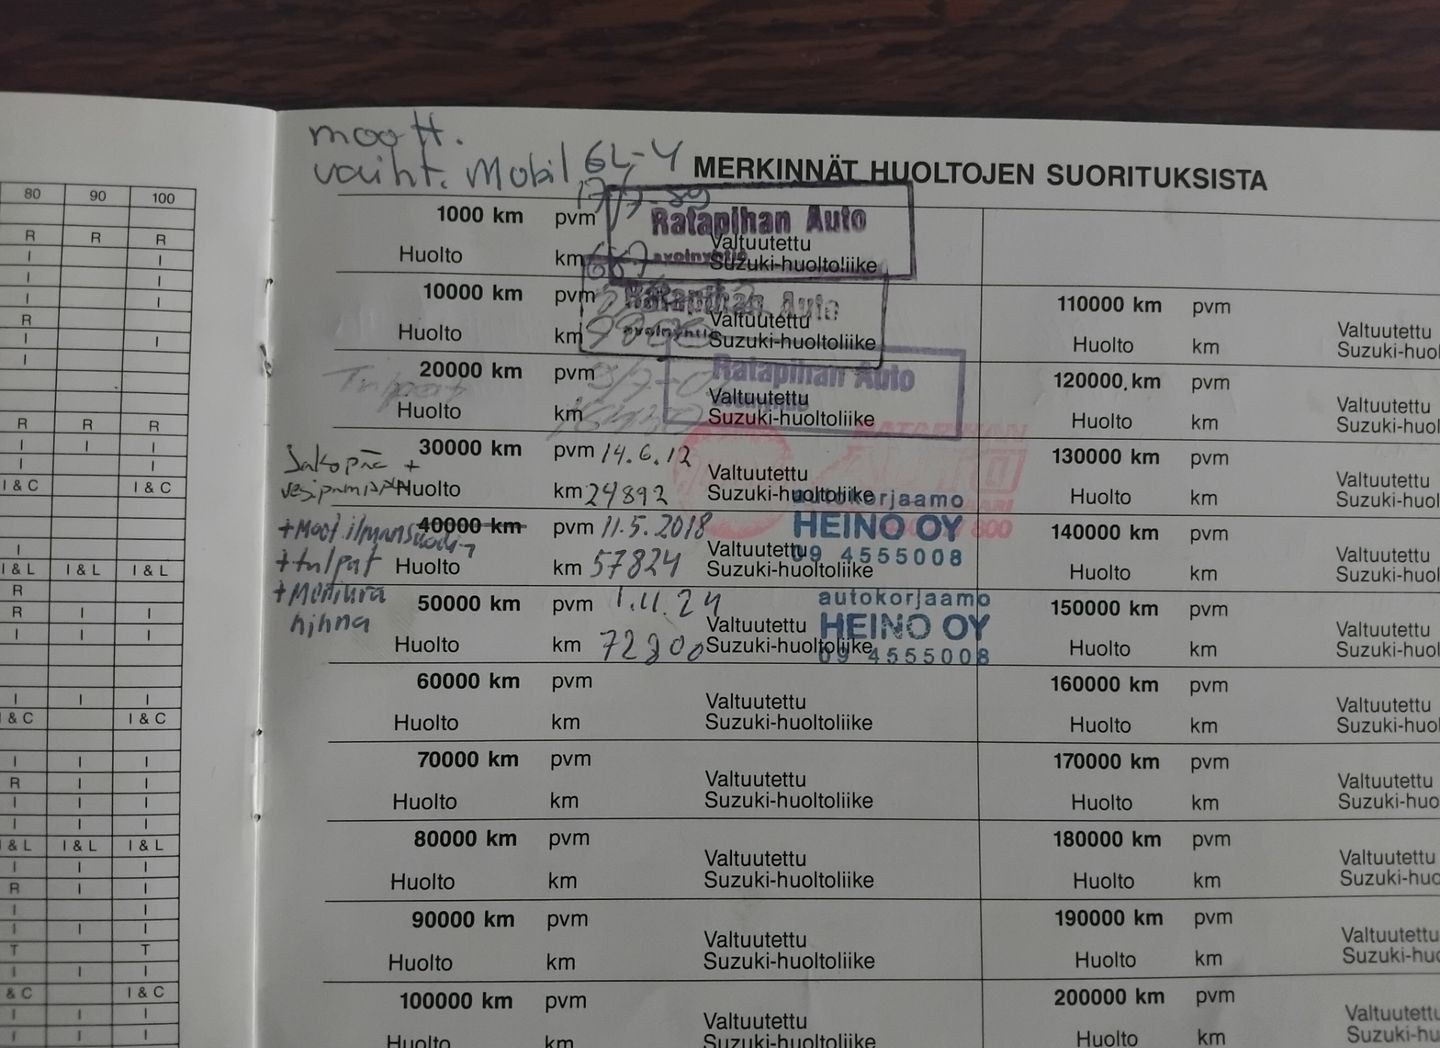 80 90 100
R R R
I I
I I
I I
R
I I
I
R R R
I I I
I I
I & C I & C
I
I & L I & L I & L
R
R I I
I I I
I I I
I & C I & C
I I I
R I I
I I I
I I I
I & L I & L I & L
I I I
R I I
I I
I I I
T T
I I I
& C I & C
I I I
I I I
moott.
vaiht. Mobil
MERKINNÄT HUOLTOJEN SUORITUKSISTA
1000 km pvm
Ratapihan Auto
Huolto km 667 Valtuutettu
Suzuki-huoltoliike
10000 km pvm
Ratapihan Auto
Huolto km Valtuutettu
Suzuki-huoltoliike
20000 km pvm
Ratapihan Auto
Huolto km Valtuutettu
Suzuki-huoltoliike
30000 km pvm 14.6.12
Jakopää +
Huolto km 24892 Valtuutettu
Suzuki-huoltoliike
RATAPIHAN
AUTO
autokorjaamo
HEINO OY
09 4555008
40000 km pvm 11.5.2018
+ Moot ilmansuodin
+ tulpat
Huolto km 57824 Valtuutettu
Suzuki-huoltoliike
50000 km pvm 1.11.24
hihna
Huolto km 72800 Valtuutettu
Suzuki-huoltoliike
autokorjaamo
HEINO OY
09 4555008
60000 km pvm
Huolto km Valtuutettu
Suzuki-huoltoliike
70000 km pvm
Huolto km Valtuutettu
Suzuki-huoltoliike
80000 km pvm
Huolto km Valtuutettu
Suzuki-huoltoliike
90000 km pvm
Huolto km Valtuutettu
Suzuki-huoltoliike
100000 km pvm
Huolto km Valtuutettu
Suzuki-huoltoliike
110000 km pvm
Huolto km Valtuutettu
Suzuki-huol
120000 km pvm
Huolto km Valtuutettu
Suzuki-huol
130000 km pvm
Huolto km Valtuutettu
Suzuki-huol
140000 km pvm
Huolto km Valtuutettu
Suzuki-huol
150000 km pvm
Huolto km Valtuutettu
Suzuki-huol
160000 km pvm
Huolto km Valtuutettu
Suzuki-huol
170000 km pvm
Huolto km Valtuutettu
Suzuki-huol
180000 km pvm
Huolto km Valtuutettu
Suzuki-huo
190000 km pvm
Huolto km Valtuutettu
Suzuki-huo
200000 km pvm
Huolto km Valtuutettu
Suzuki-hu